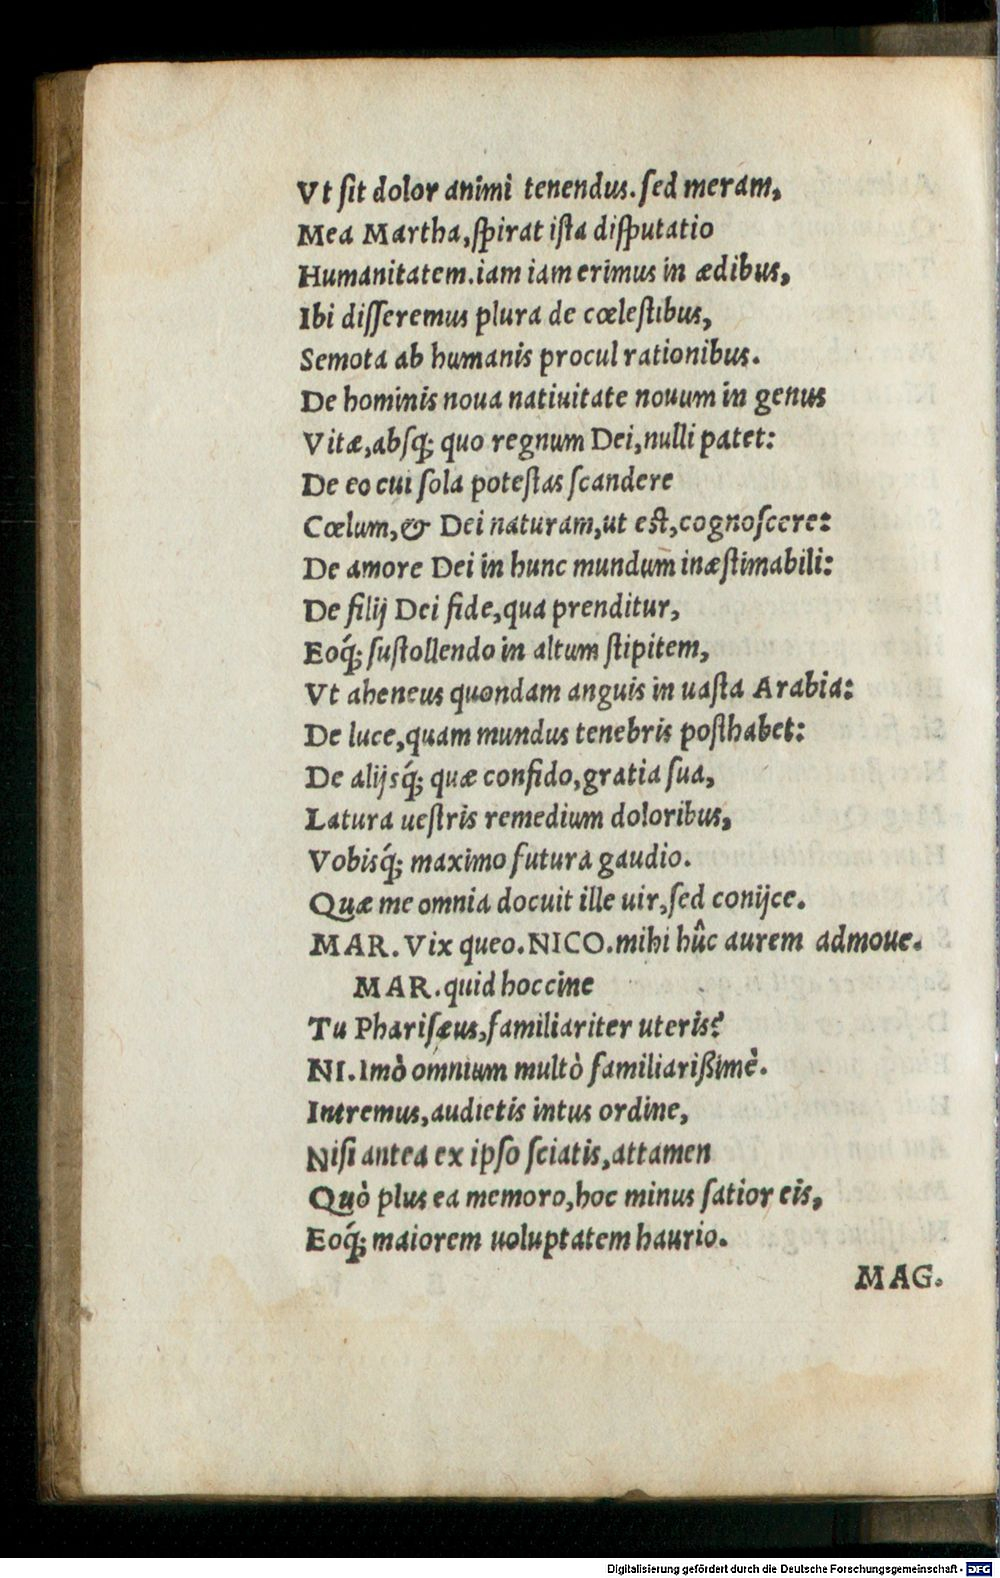 Vt ſit dolor animi tenendus. ſed meram,
Mea Martha, ſpirat iſta diſputatio
Humanitatem. iam iam erimus in ædibus,
Ibi diſſeremus plura de cœleſtibus,
Semota ab humanis procul rationibus.
De hominis noua natiuitate nouum in genus
Vitæ, abſq; quo regnum Dei, nulli patet:
De eo cui ſola poteſtas ſcandere
Cœlum, & Dei naturam, ut eſt, cognoſcere:
De amore Dei in hunc mundum inæſtimabili:
De filij Dei fide, qua prenditur,
Eoq́; ſuſtollendo in altum ſtipitem,
Vt aheneus quondam anguis in uaſta Arabia:
De luce, quam mundus tenebris poſthabet:
De alijsq́; quæ confido, gratia ſua,
Latura ueſtris remedium doloribus,
Vobisq́; maximo futura gaudio.
Quæ me omnia docuit ille uir, ſed conijce.
MAR. Vix queo. NICO. mihi hûc aurem admoue.
MAR. quid hoccine
Tu Phariſæus, familiariter uteris?
NI. Imò omnium multò familiarißimè.
Intremus, audietis intus ordine,
Niſi antea ex ipſo ſciatis, attamen
Quò plus ea memoro, hoc minus ſatior eis,
Eoq́; maiorem uoluptatem haurio.
MAG.
Digitalisierung gefördert durch die Deutsche Forschungsgemeinschaft - DFG